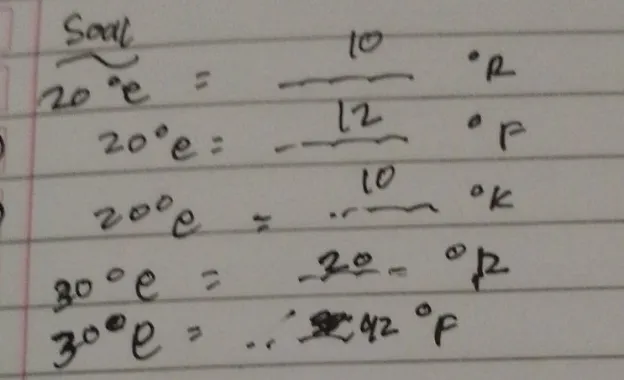 Soal
20°e = 10 °R
20°e = 12 °F
20°e = 10 °K
30°e = 20 °R
30°e = 42 °F